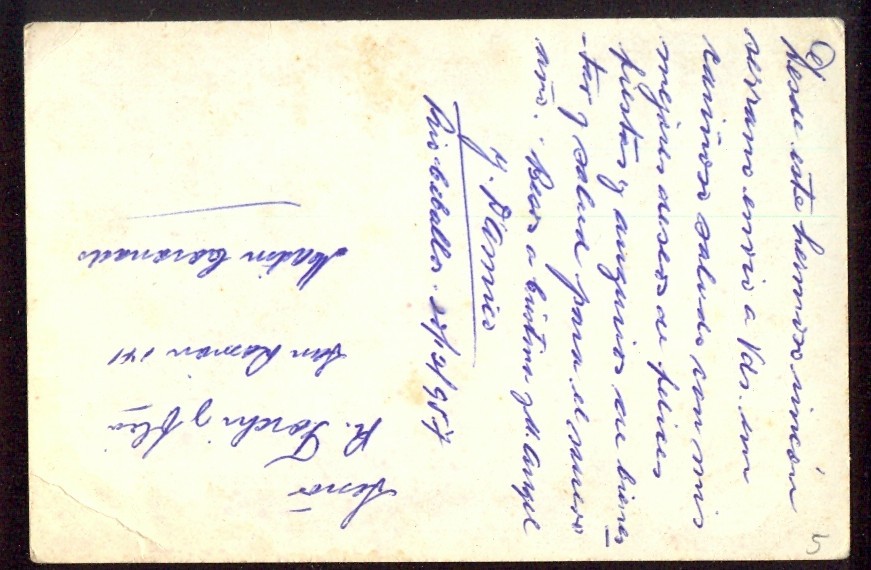 Desde este hermoso rincón
serrano envío a Vds. un
cariñoso saludo con mis
mejores deseos de felices
fiestas y augurios de bienes-
tar y salud para el nuevo
año. Besos a Cristina y M. Angel
J. D'Amico
Rio Ceballos
Señor
R. Torchi y Flia
San Ramón 141
Martin Coronado
5